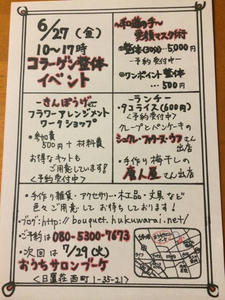 6/27(金)
10〜17時
コラーゲン整体
イベント
〜和み歯の手〜
整体(30分)…5,000円
〜予約受付中〜
ワンポイント整体
…500円
〜さんぽうげ〜
フラワーアレンジメント
ワークショップ
・参加費
500円+材料費
お得なキットも
ご用意しています!
<予約受付中>
〜ランチ〜
・タコライス(600円)
<予約受付中>
クレープとパンケーキの
さん出店
・手作り梅干しの
唐人屋さん出店
・手作り雑貨・アクセサリー・木工品・文具など
色々ご用意してお待ちしております!
ブログ:http://bouquet.hukuwarai.net/
ご予約は 080-5300-7673
・次回は 7/29(火)
おうちサロンブーケ
<日置荘西町1-35-21>